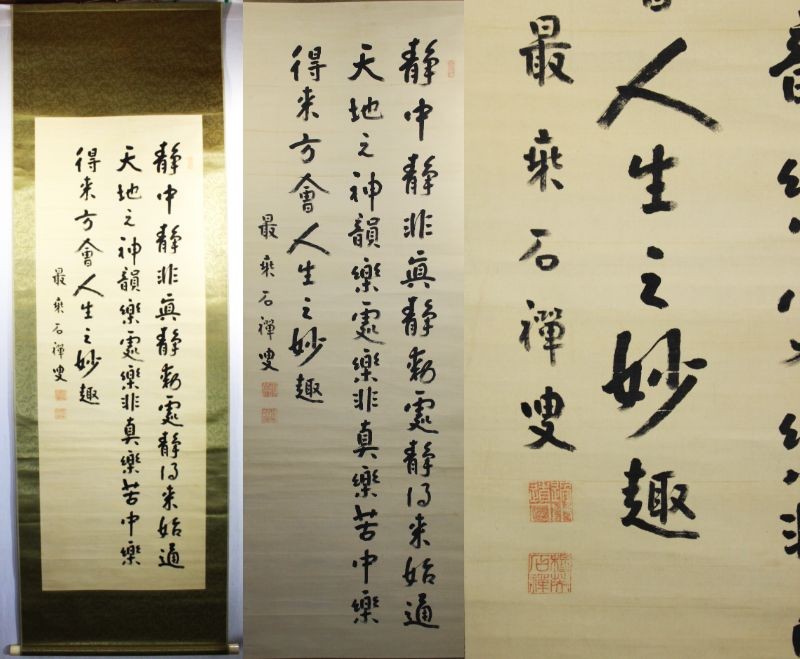 靜中靜非眞靜動處靜得来始通
天地之神韻樂處樂非真樂苦中樂
得来方會人生之妙趣
最乗石禪叟
靜中靜非眞靜動處靜得来始通
天地之神韻樂處樂非真樂苦中樂
得来方會人生之妙趣
最乗石禪叟
人生之妙趣
最乗石禪叟